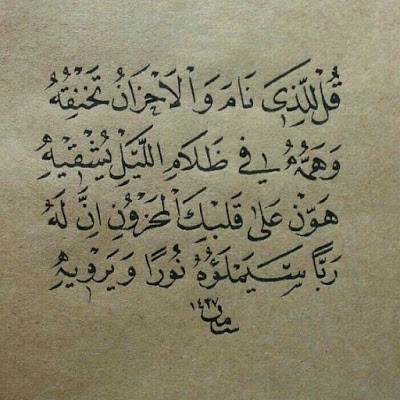 قُلْ لِلَّذِى نَامَ وَالْاَحْزَانُ تَخْنِقُهُ
وَهَمُّهُ فِي ظَلَامِ اللَّيْلِ يُشْقِيْهِ
هَوِّنْ عَلٰى قَلْبِكَ الْمَحْزُوْنِ اِنَّ لَهُ
رَبًّا سَيَمْلَؤُهُ نُوْرًا وَيَرْوِيْهِ
١٤٣٧